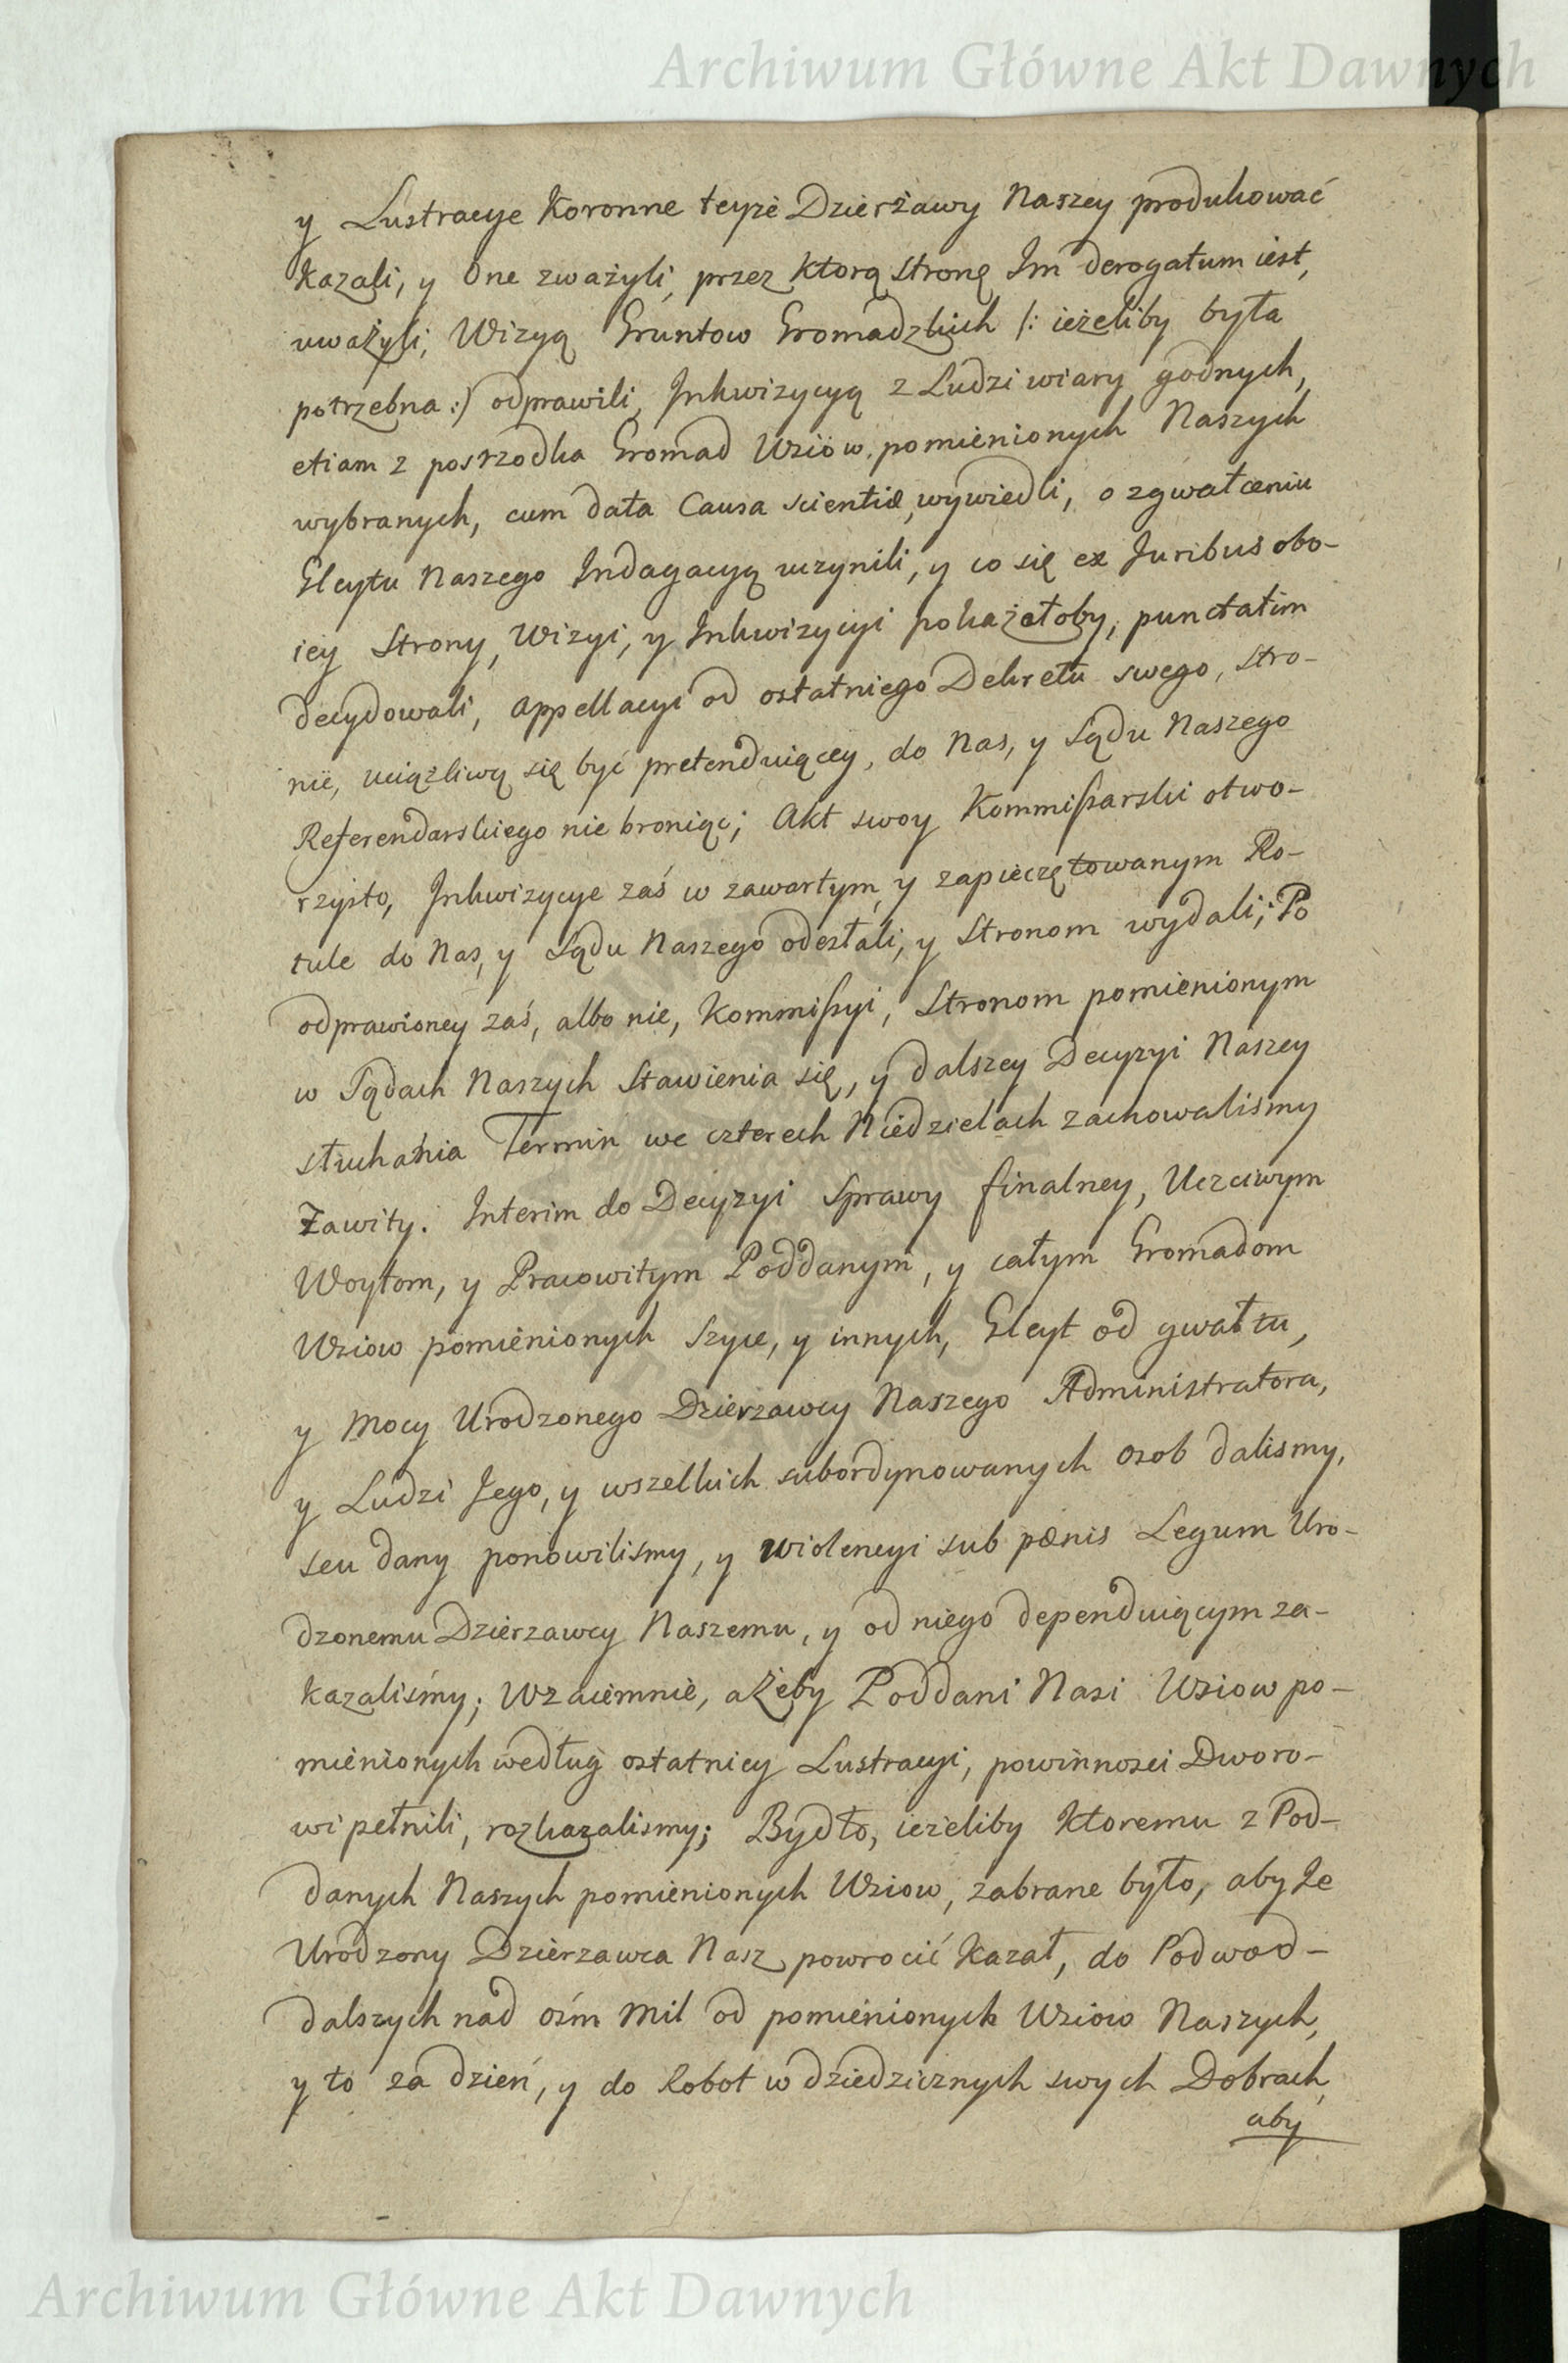 Archiwum Główne Akt Dawnych
y Lustracye Koronne teyże Dzierżawy Naszey produkować
kazali, y One zważyli, przez ktorą stronę Im derogatum iest,
uważyli, Wizyą Gruntow Gromadzkich /: ieżeliby była
potrzebna :/ odprawili, Inkwizycyą z Ludzi wiary godnych,
etiam z posrzodka Gromad Wsiow pomienionych Naszych
wybranych, cum data Causa scientiæ, wywiedli, o zgwałceniu
Gleytu Naszego Indagacyą uczynili, y co się ex Juribus obo-
iey Strony, Wizyi, y Inkwizycyi pokażałoby, punctatim
decydowali, Appellacyi od ostatniego Dekretu swego, stro-
nie, uciążliwą się być pretenduiącey, do Nas, y Sądu Naszego
Referendarskiego nie broniąc; Akt swoy Kommissarski otwo-
rzysto, Inkwizycye zaś w zawartym, y zapieczętowanym Ro-
tule do Nas, y Sądu Naszego odesłali, y Stronom wydali; Po
odprawioney zaś, albo nie, Kommissyi, Stronom pomienionym
w Sądach Naszych Stawienia się, y dalszey Decyzyi Naszey
słuchania Termin we czterech Niedzielach zachowaliśmy
Zawity. Interim do Decyzyi Sprawy finalney, Uczciwym
Woytom, y Pracowitym Poddanym, y całym Gromadom
Wsiow pomienionych Szyce, y innych, Gleyt od gwałtu,
y Mocy Urodzonego Dzierzawcy Naszego Administratora,
y Ludzi Jego, y wszelkich subordynowanych osob dalismy,
seu dany ponowilismy, y wiolencyi sub pænis Legum Uro-
dzonemu Dzierzawcy Naszemu, y od niego dependuiącym za-
kazaliśmy; Wzaiemnie, ażeby Poddani Nasi Wsiow po-
mienionych według ostatniey Lustracyi, powinnosci Dworo-
wi pełnili, rozkazalismy; Bydło, ieżeliby ktoremu z Pod-
danych Naszych pomienionych Wsiow, zabrane było, aby Je
Urodzony Dzierzawca Nasz powrocić kazał, do Podwod-
dalszych nad ośm Mil od pomienionych Wsiow Naszych,
y to za dzień, y do Robot w dziedzicznych swych Dobrach,
aby
Archiwum Główne Akt Dawnych